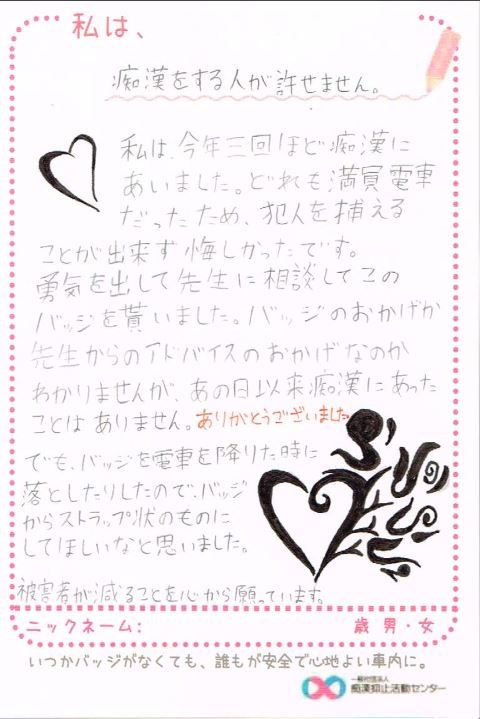 私は、
痴漢をする人が許せません。
私は、今年三回ほど痴漢に
あいました。どれも満員電車
だったため、犯人を捕える
ことが出来ず悔しかったです。
勇気を出して先生に相談してこの
バッジを貰いました。バッジのおかげか
先生からのアドバイスのおかげなのか
わかりませんが、あの日以来痴漢にあった
ことはありません。ありがとうございました
でも、バッジを電車を降りた時に
落としたりしたので、バッジ
からストラップ状のものに
してほしいなと思いました。
被害者が減ることを心から願っています。
ニックネーム: 歳 男・女
いつかバッジがなくても、誰もが安全で心地よい車内に。
一般社団法人
痴漢抑止活動センター